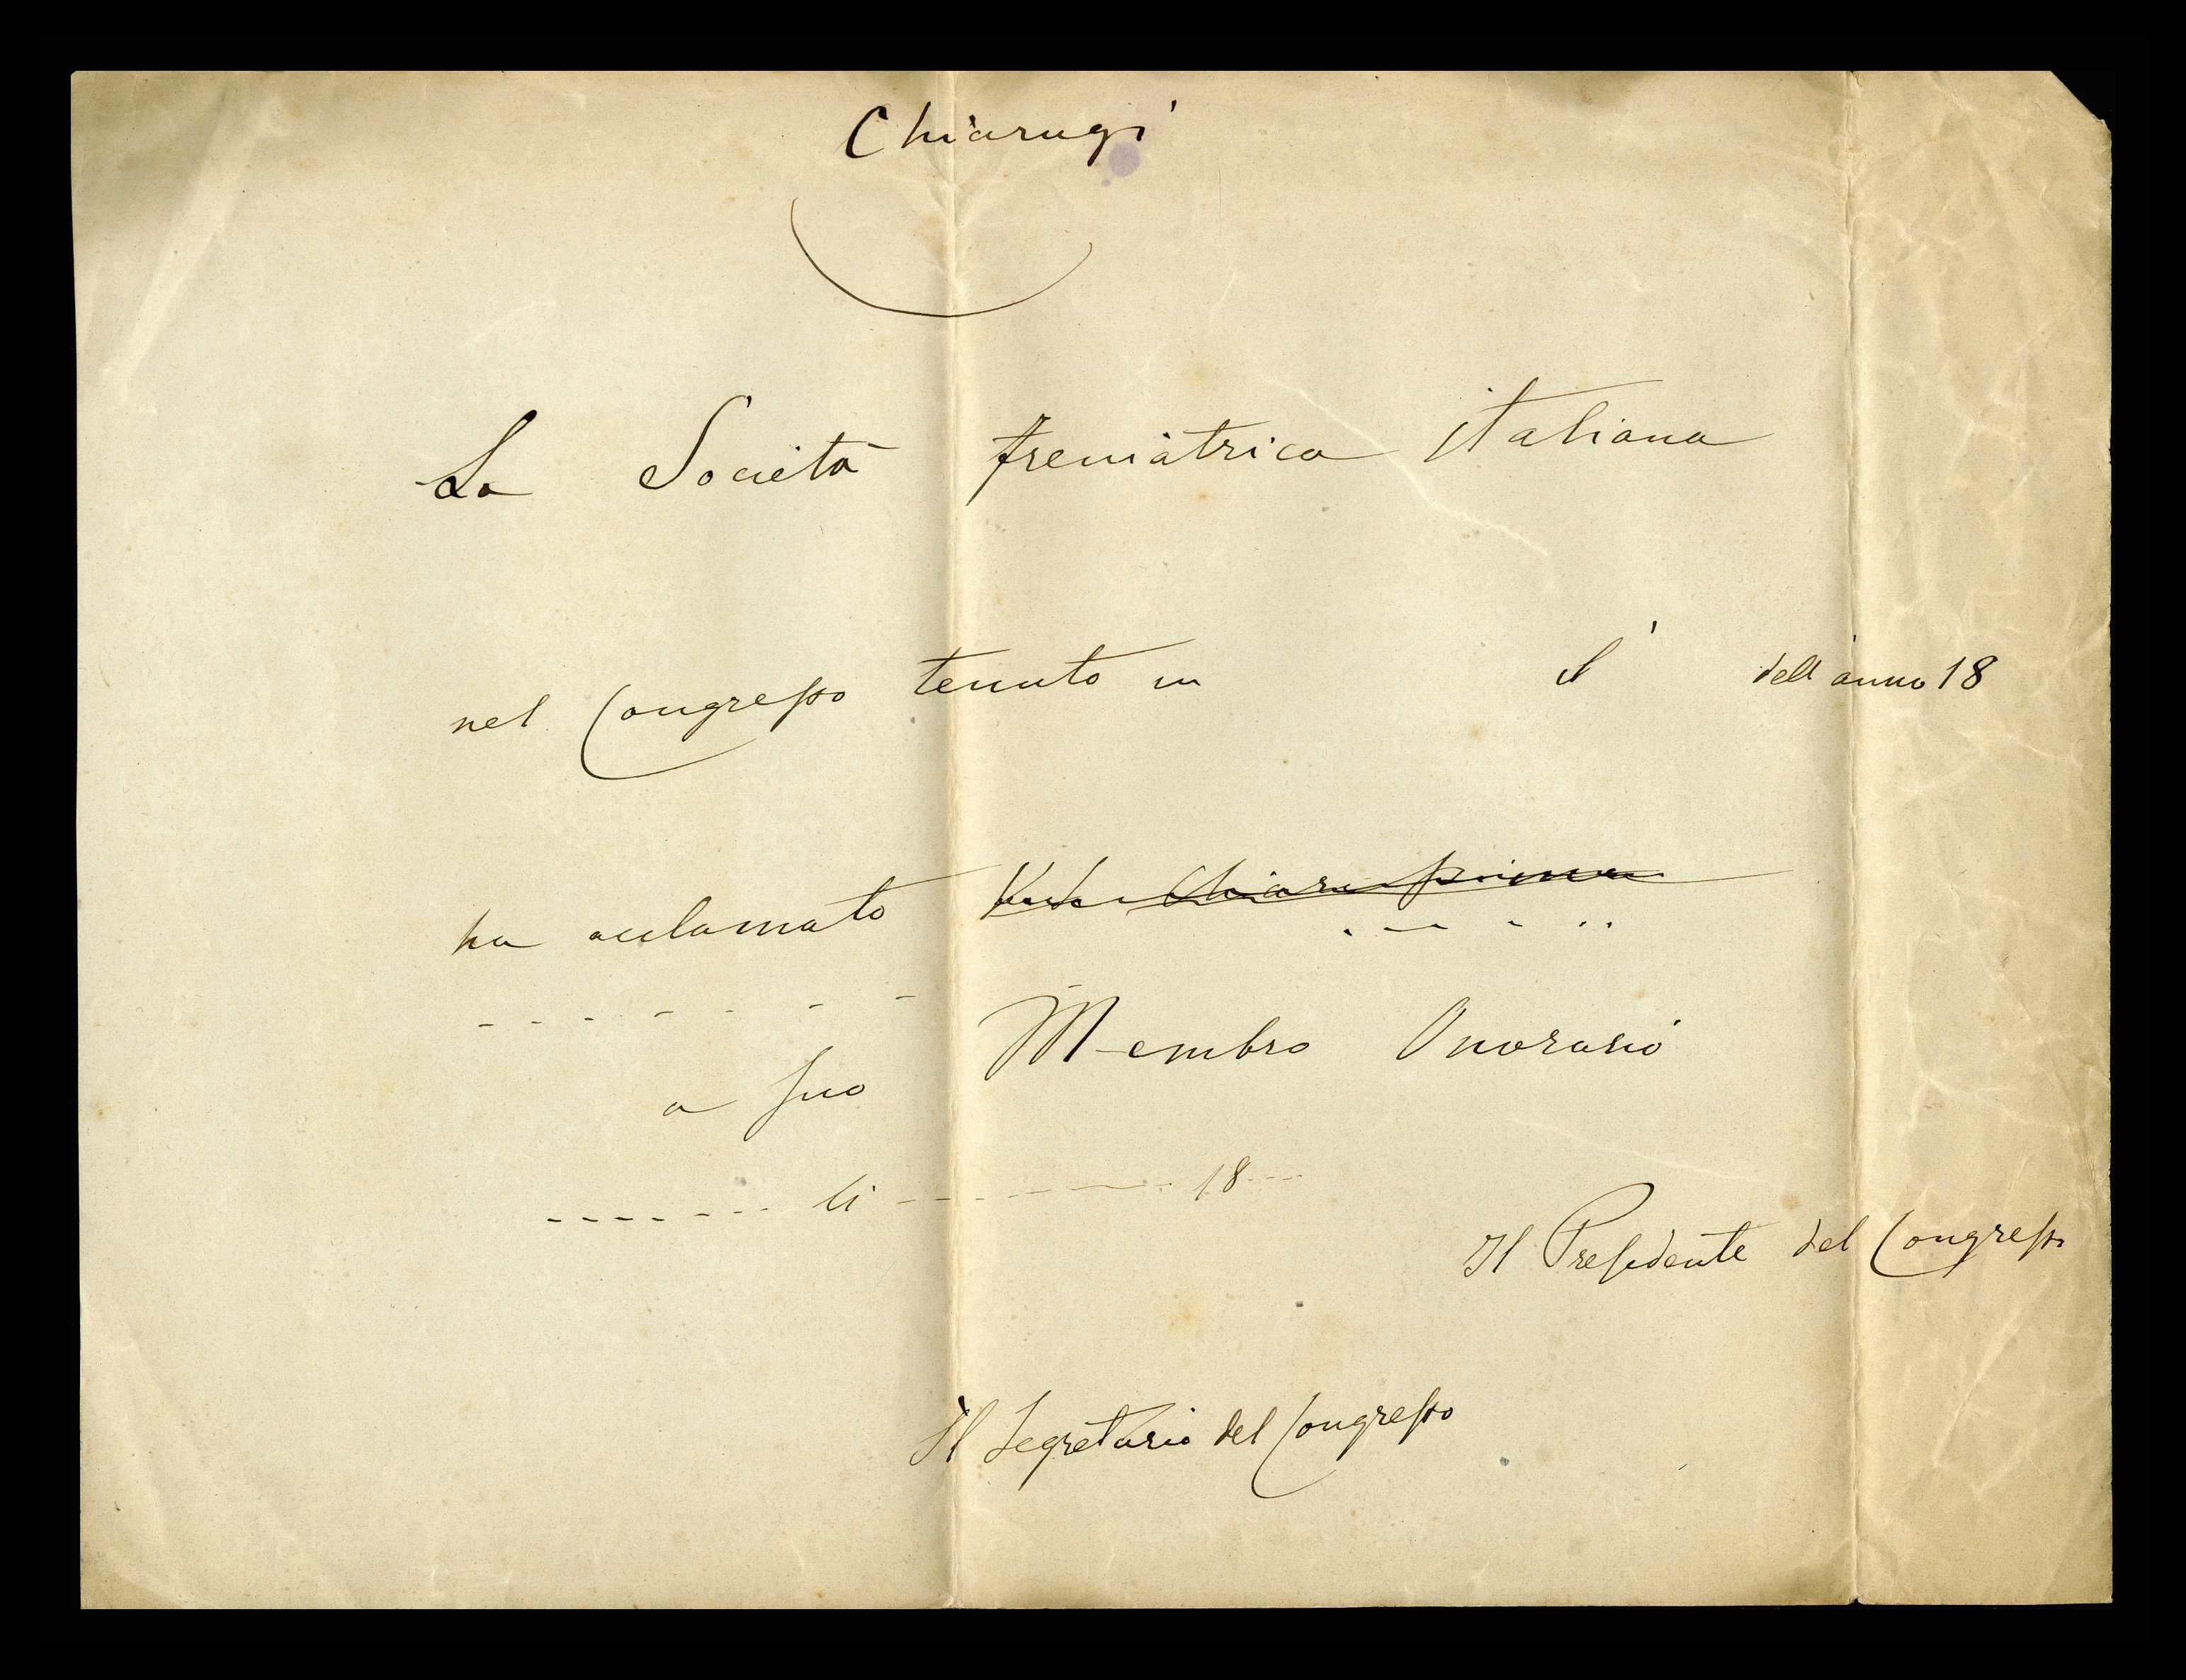 Chiarugi
La Società freniatrica italiana
nel Congresso tenuto in il dell'anno 18
ha acclamato
a suo Membro Onorario
------- li ---------- 18---
Il Presidente del Congresso
Il Segretario del Congresso